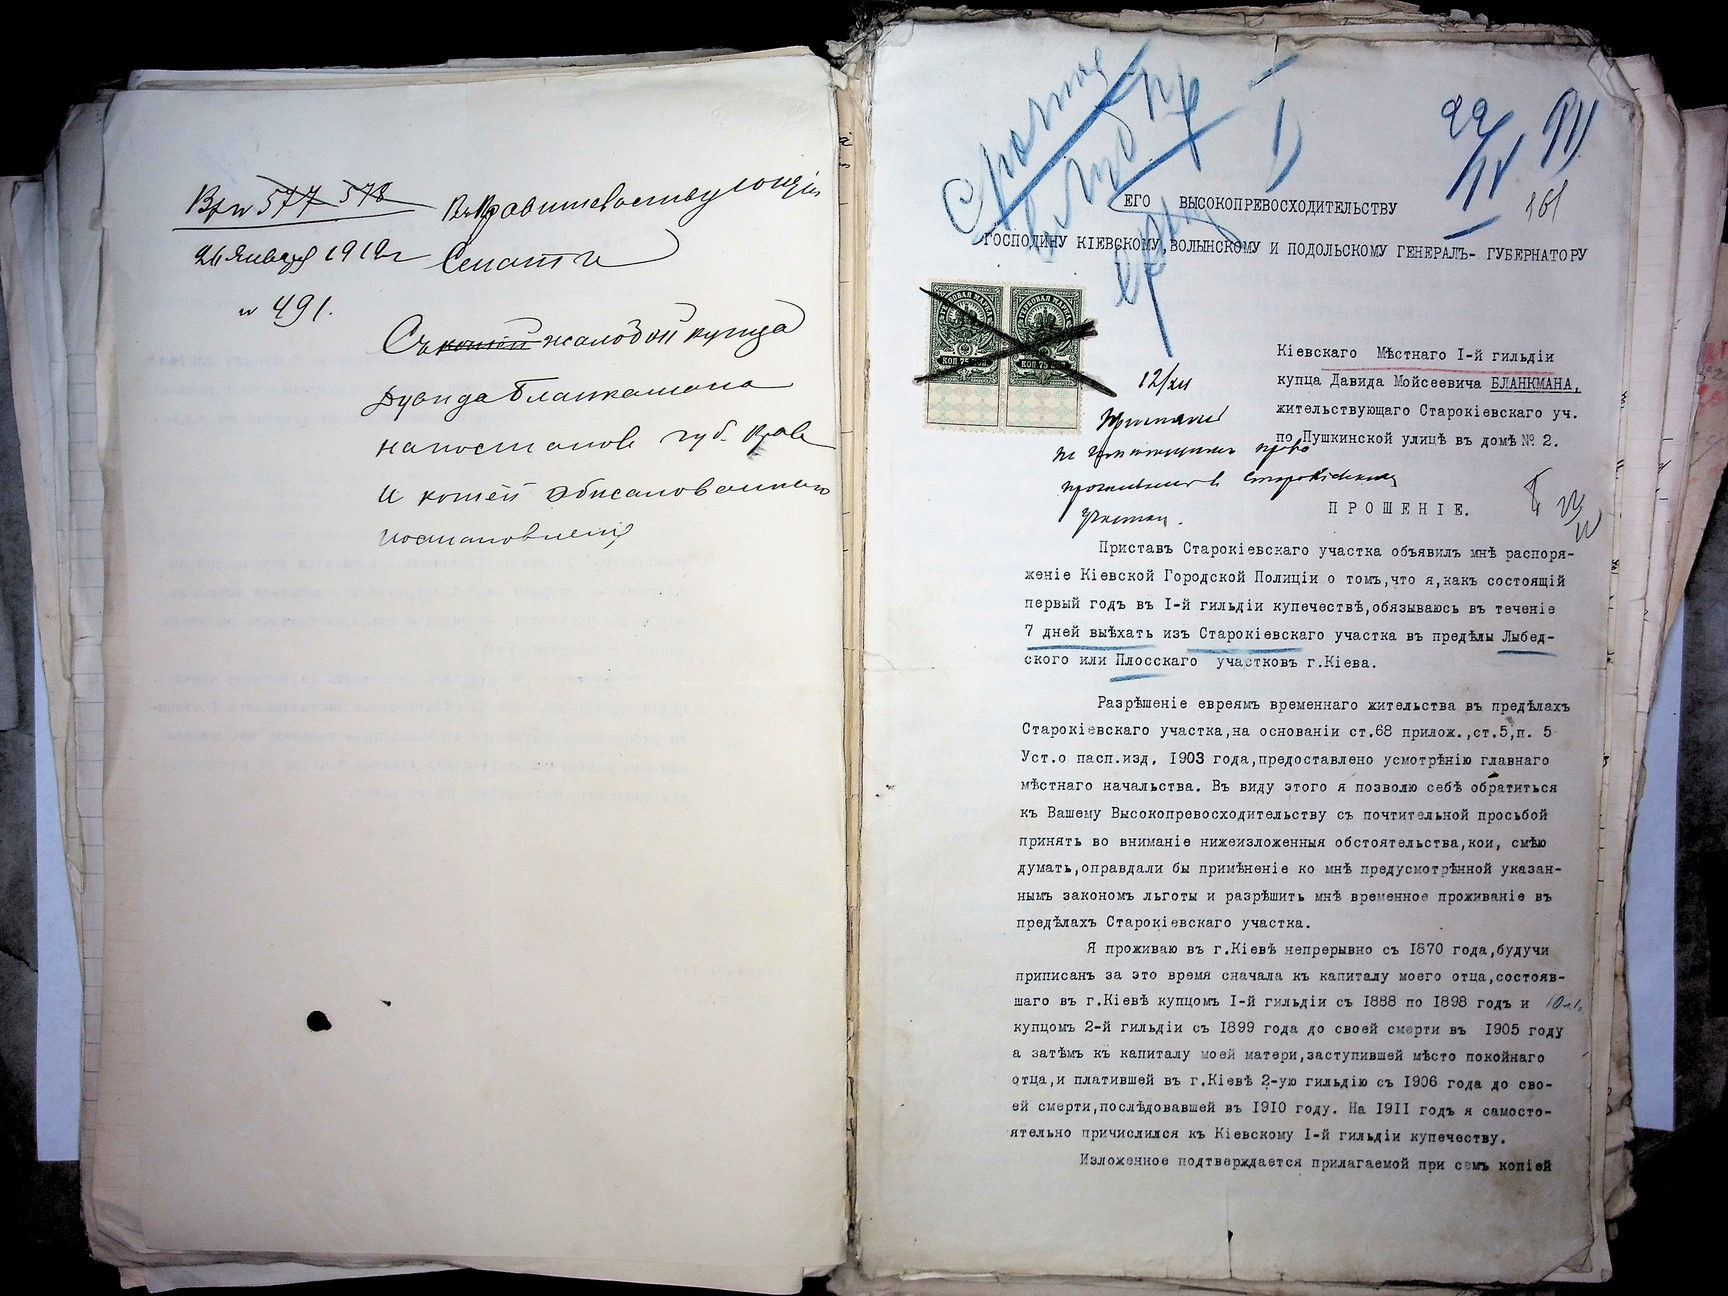 577 578
26 Января 1912 г
№ 491.
Въ Правительствующій
Сенатъ
Съ копіей жалобой купца
Давида Бланкмана
на постанов. губ. Прав
и копіей обжалованнаго
постановленія
161
ЕГО ВЫСОКОПРЕВОСХОДИТЕЛЬСТВУ
ГОСПОДИНУ КІЕВСКОМУ, ВОЛЫНСКОМУ И ПОДОЛЬСКОМУ ГЕНЕРАЛЪ- ГУБЕРНАТОРУ
КОП 75 КОП
КОП 75 КОП
12/XII
Кіевскаго Мѣстнаго I-й гильдіи
купца Давида Мойсеевича БЛАНКМАНА,
жительствующаго Старокіевскаго уч.
по Пушкинской улицѣ въ домѣ № 2.
участка.
ПРОШЕНІЕ.
Приставъ Старокіевскаго участка объявилъ мнѣ распоря-
женіе Кіевской Городской Полиціи о томъ,что я,какъ состоящій
первый годъ въ I-й гильдіи купечествѣ,обязываюсь въ теченіе
7 дней выѣхать изъ Старокіевскаго участка въ предѣлы Лыбед-
ского или Плосскаго участковъ г.Кіева.
Разрѣшеніе евреямъ временнаго жительства въ предѣлахъ
Старокіевскаго участка,на основаніи ст.68 прилож.,ст.5,п. 5
Уст.о пасп.изд. 1903 года,предоставлено усмотрѣнію главнаго
мѣстнаго начальства. Въ виду этого я позволю себѣ обратиться
къ Вашему Высокопревосходительству съ почтительной просьбой
принять во вниманіе нижеизложенныя обстоятельства,кои, смѣю
думать,оправдали бы примѣненіе ко мнѣ предусмотрѣнной указан-
нымъ закономъ льготы и разрѣшить мнѣ временное проживаніе въ
предѣлахъ Старокіевскаго участка.
Я проживаю въ г.Кіевѣ непрерывно съ 1870 года,будучи
приписанъ за это время сначала къ капиталу моего отца,состояв-
шаго въ г.Кіевѣ купцомъ I-й гильдіи съ 1888 по 1898 годъ и
купцомъ 2-й гильдіи съ 1899 года до своей смерти въ 1905 году
а затѣмъ къ капиталу моей матери,заступившей мѣсто покойнаго
отца,и платившей въ г.Кіевѣ 2-ую гильдію съ 1906 года до сво-
ей смерти,послѣдовавшей въ 1910 году. На 1911 годъ я самосто-
ятельно причислился къ Кіевскому I-й гильдіи купечеству.
Изложенное подтверждается прилагаемой при семъ копіей